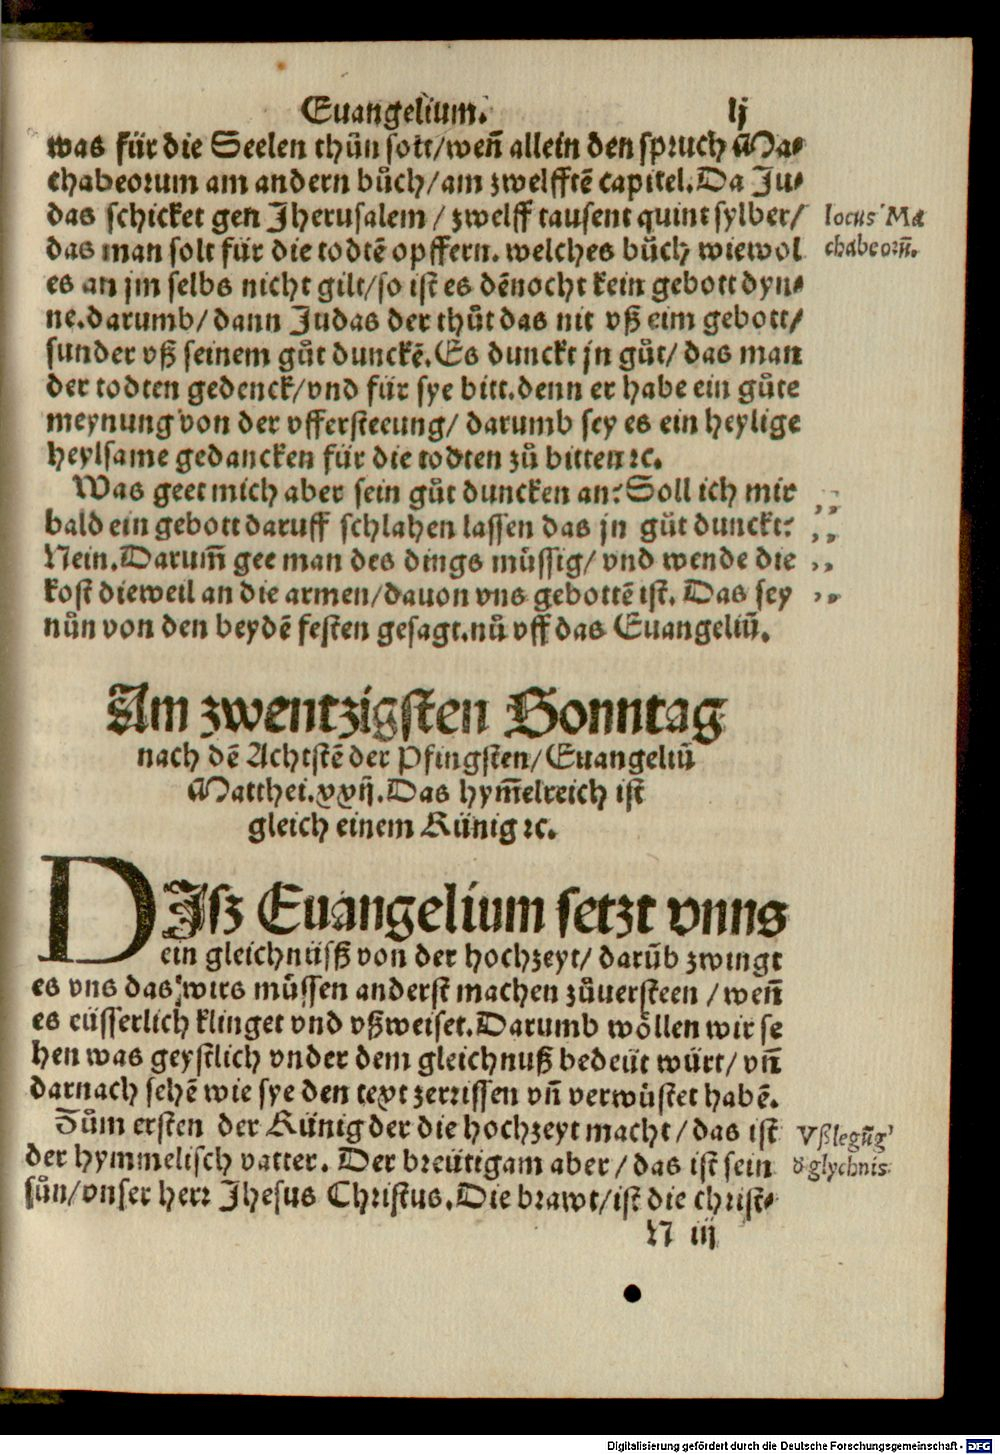 Euangelium. lj
was für die Seelen thůn sott/weñ allein den spruch Ma⸗
chabeorum am andern bůch/am zwelfftē capitel. Da Ju⸗
das schicket gen Jherusalem / zwelff tausent quint sylber/
locus Ma
das man solt für die todtē opffern. welches bůch wiewol
chabeorū.
es an jm selbs nicht gilt/so ist es dēnocht kein gebott dyn⸗
ne. darumb/ dann Judas der thůt das nit vß eim gebott/
sunder vß seinem gůt dunckē. Es dunckt jn gůt/ das man
der todten gedenck/vnd für sye bitt. denn er habe ein gůte
meynung von der vffersteeung/ darumb sey es ein heylige
heylsame gedancken für die todten zů bitten ꝛc.
Was geet mich aber sein gůt duncken an? Soll ich mir
bald ein gebott daruff schlahen lassen das jn gůt dunckt?
Nein. Darum̄ gee man des dings müssig/ vnd wende die
kost dieweil an die armen/dauon vns gebottē ist. Das sey
nůn von den beydē festen gesagt. nů vff das Euangeliū.
Am zwentzigsten Sonntag
nach dē Achtstē der Pfingsten/ Euangeliū
Matthei. xxij. Das hym̄elreich ist
gleich einem Künig ꝛc.
DJsz Euangelium setzt vnns
ein gleichnüsß von der hochzeyt/ darūb zwingt
es vns das wirs müssen anderst machen zůuersteen / weñ
es eüsserlich klinget vnd vßweiset. Darumb wöllen wir se
hen was geystlich vnder dem gleichnuß bedeüt würt/ vñ
darnach sehē wie sye den text zerrissen vñ verwüstet habē.
Zům ersten der Künig der die hochzeyt macht/ das ist
Vßlegūg
der hymmelisch vatter. Der breütigam aber / das ist sein
d' glychnis
sůn/vnser herr Jhesus Christus. Die brawt/ist die christ⸗
N iij
Digitalisierung gefördert durch die Deutsche Forschungsgemeinschaft - DFG